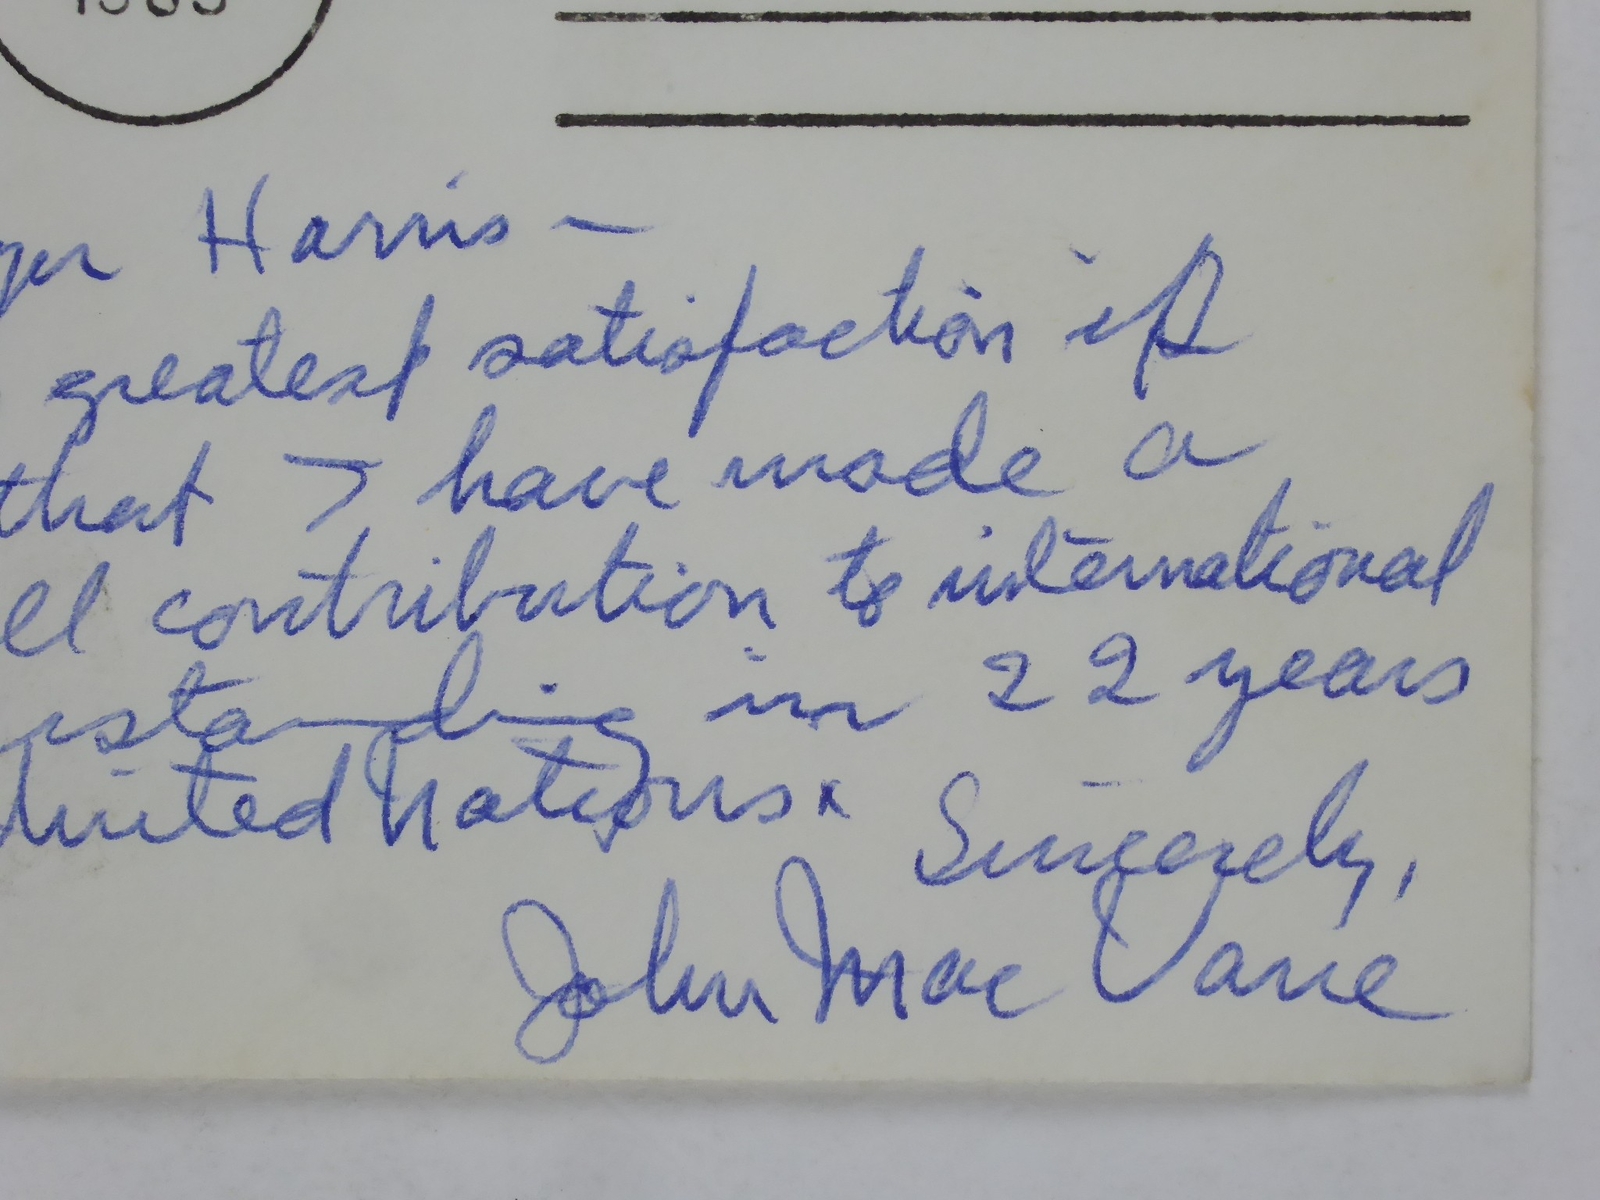 Harris –
greatest satisfaction is
that I have made a
contribution to international
standing in 22 years
United Nations. Sincerely,
John Mac Vane